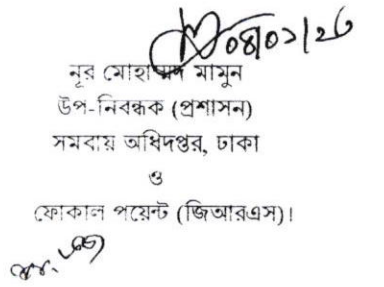 ০৪/০১/২৬
নূর মোহাম্মদ মামুন
উপ-নিবন্ধক (প্রশাসন)
সমবায় অধিদপ্তর, ঢাকা
ও
ফোকাল পয়েন্ট (জিআরএস)।